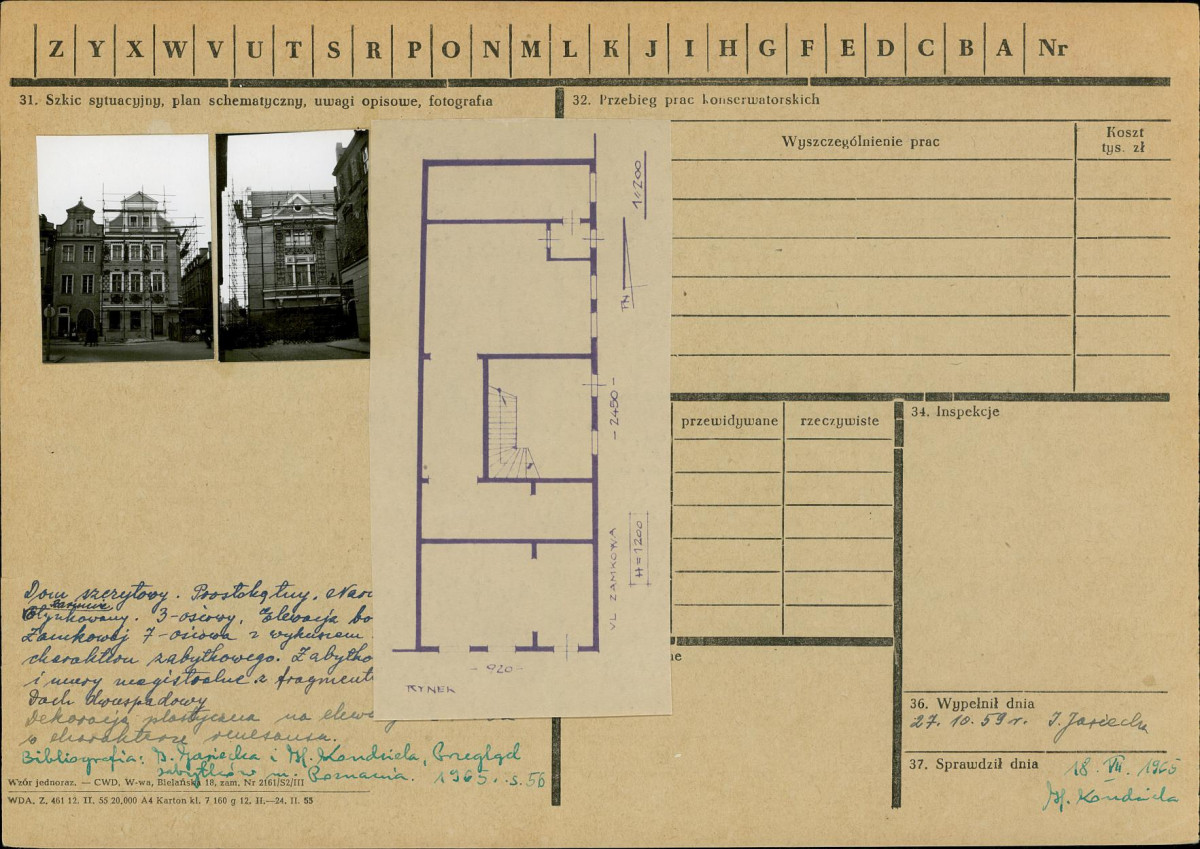 Z Y X W V U T S R P O N M L K J I H G F E D C B A Nr
31. Szkic sytuacyjny, plan schematyczny, uwagi opisowe, fotografia
32. Przebieg prac konserwatorskich
Wyszczególnienie prac
Koszt
tys. zł
1:200
PN
- 2450 -
H = 1200
UL ZAMKOWA
- 920 -
RYNEK
przewidywane
rzeczywiste
34. Inspekcje
Dom szczytowy. Prostokątny,
Otynkowany. 3-osiowy, Elewacja
Zamkowej 7-osiowa z wykuszem
charakteru zabytkowego.
i mury magistralne z
Dach dwuspadowy
Dekoracja plastyczna na
o charakterze renesansu.
Bibliografia: B. Jasiecka i M. Kondziela, Przegląd
zabytków m. Poznania. 1965. s. 56
Wzór jednoraz. — CWD, W-wa, Bielańska 18, zam. Nr 2161/S2/III
WDA, Z. 461 12. II. 55 20,000 A4 Karton kl. 7 160 g 12. H.—24. II. 55
36. Wypełnił dnia
27. 10. 59 r.
37. Sprawdził dnia
18. VII. 1965
M. Kondziela